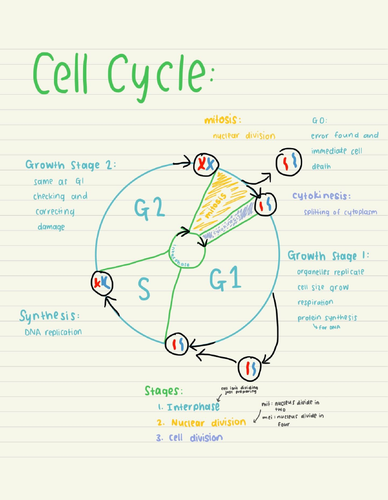 Cell Cycle:
mitosis:
nuclear division
G0:
error found and
immediate cell
death
Growth Stage 2:
same at G1
checking and
correcting
damage
G2
mitosis
cytokinesis
cytokinesis:
splitting of cytoplasm
interphase
S
G1
Growth Stage 1:
organelles replicate
cell size grow
respiration
protein synthesis
↳ for DNA
Synthesis:
DNA replication
Stages:
not just dividing
just preparing
1. Interphase
2. Nuclear division
3. Cell division
mit: nucleus divide in
two
mei: nucleus divide in
four